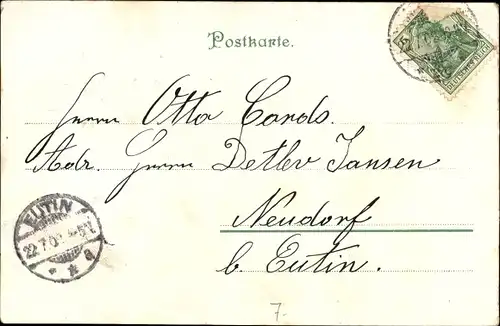 Postkarte.
DEUTSCHES REICH
Herrn Otto Cards.
Adr. Herrn Detlev Jansen
Neudorf
b. Eutin.
EUTIN
22.7.0
a
7.